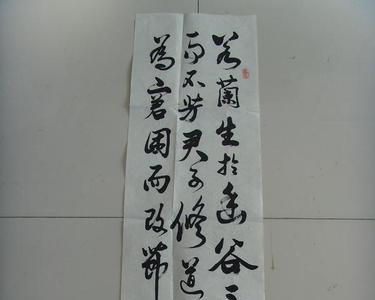 芝蘭生於幽谷不
而不芳君子修道
為窘困而改節